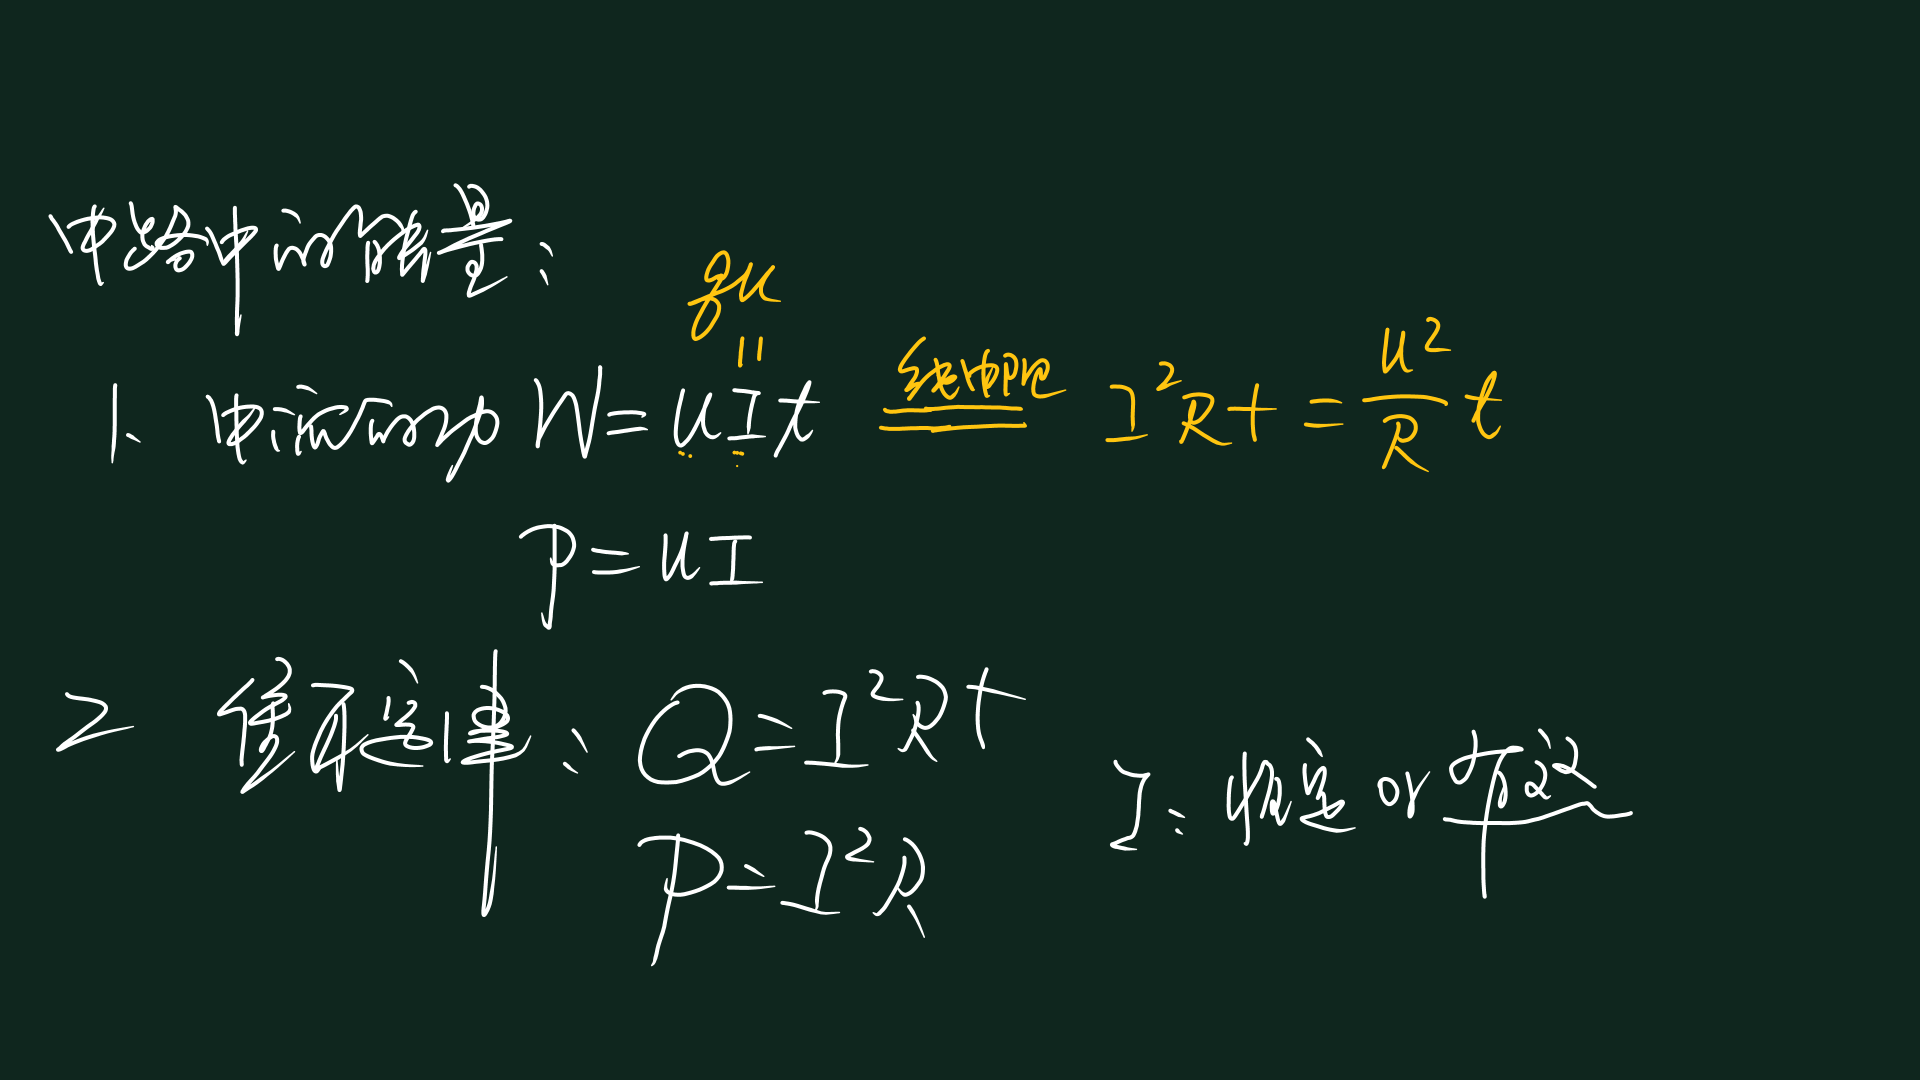 电路中的能量:
qu
||
1、电流的功 W=uIt 纯电阻 I²Rt=u²/R t
P=uI
2 焦耳定律: Q=I²Rt
I: 恒定 or 有效
P=I²R